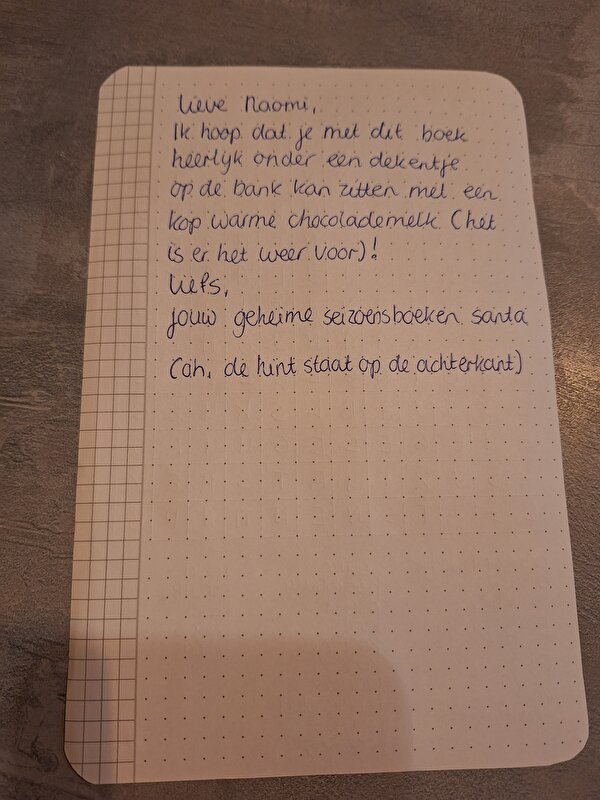 Lieve Naomi,
Ik hoop dat je met dit boek
heerlijk onder een dekentje
op de bank kan zitten met een
kop warme chocolademelk (het
is er het weer voor)!
Liefs,
jouw geheime seizoensboeken santa
(oh, de hint staat op de achterkant)